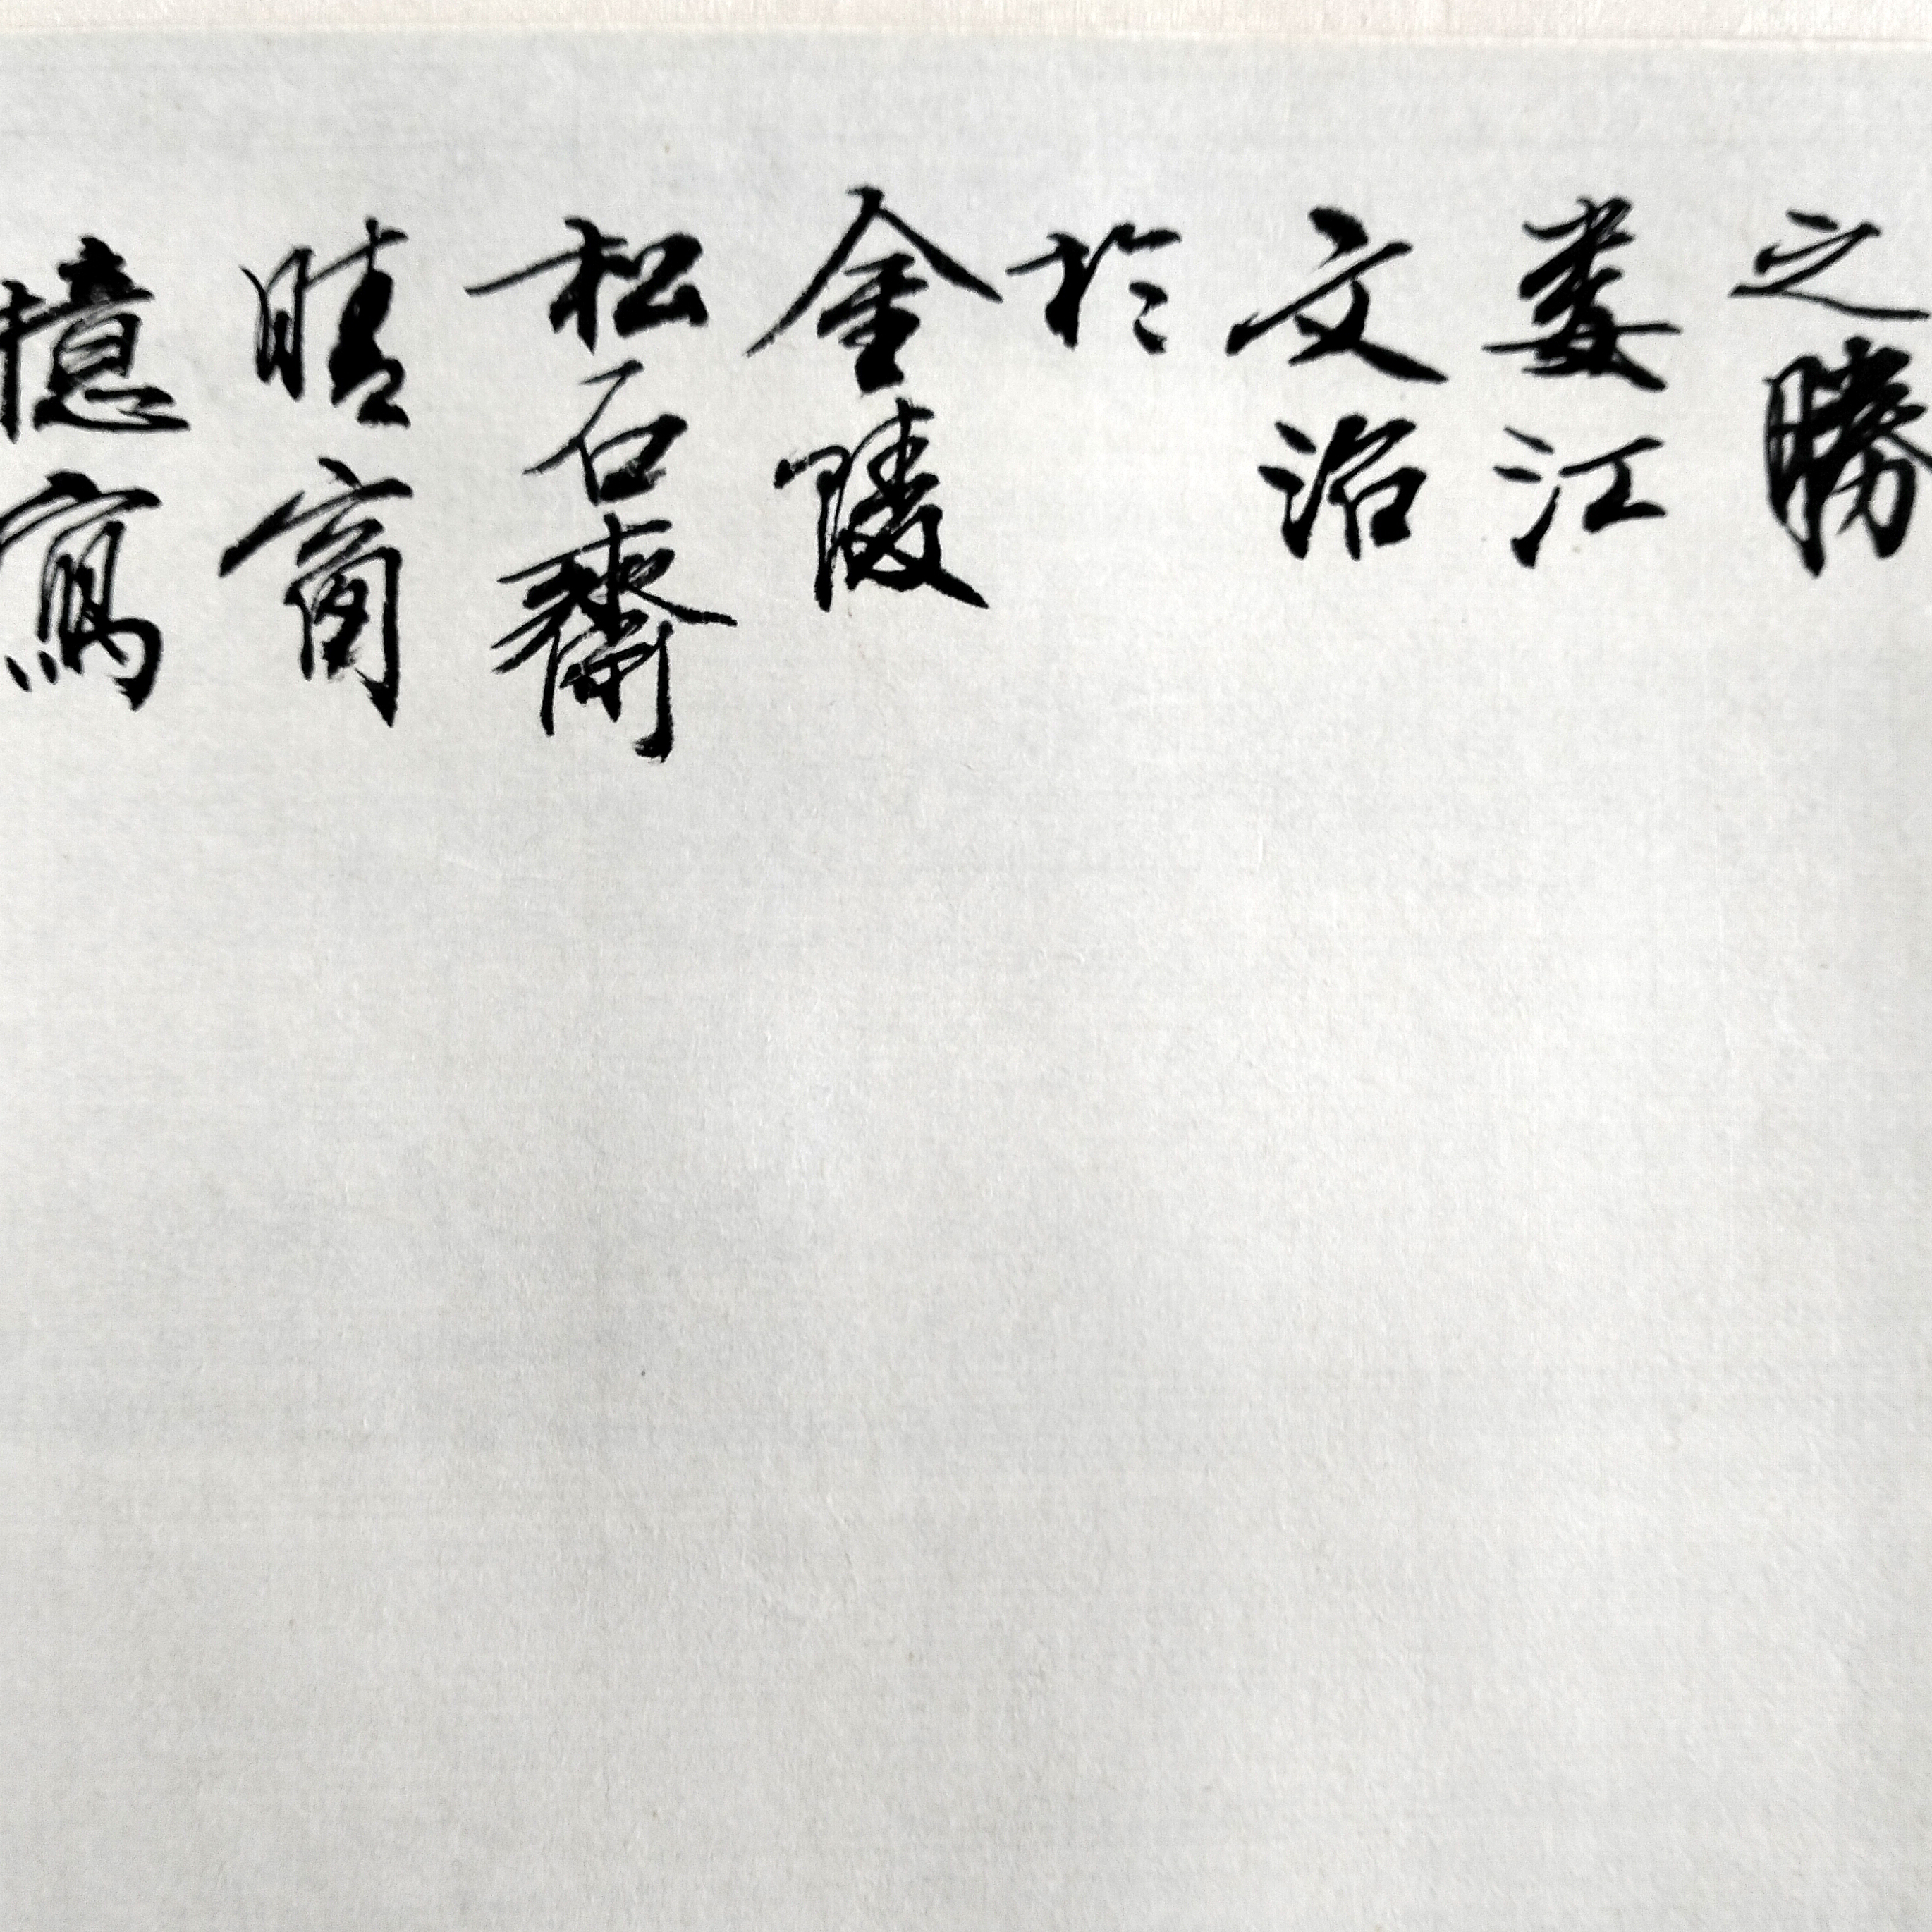 之勝
婁江
文治
於
金陵
松石齋
晴窗
憶寫